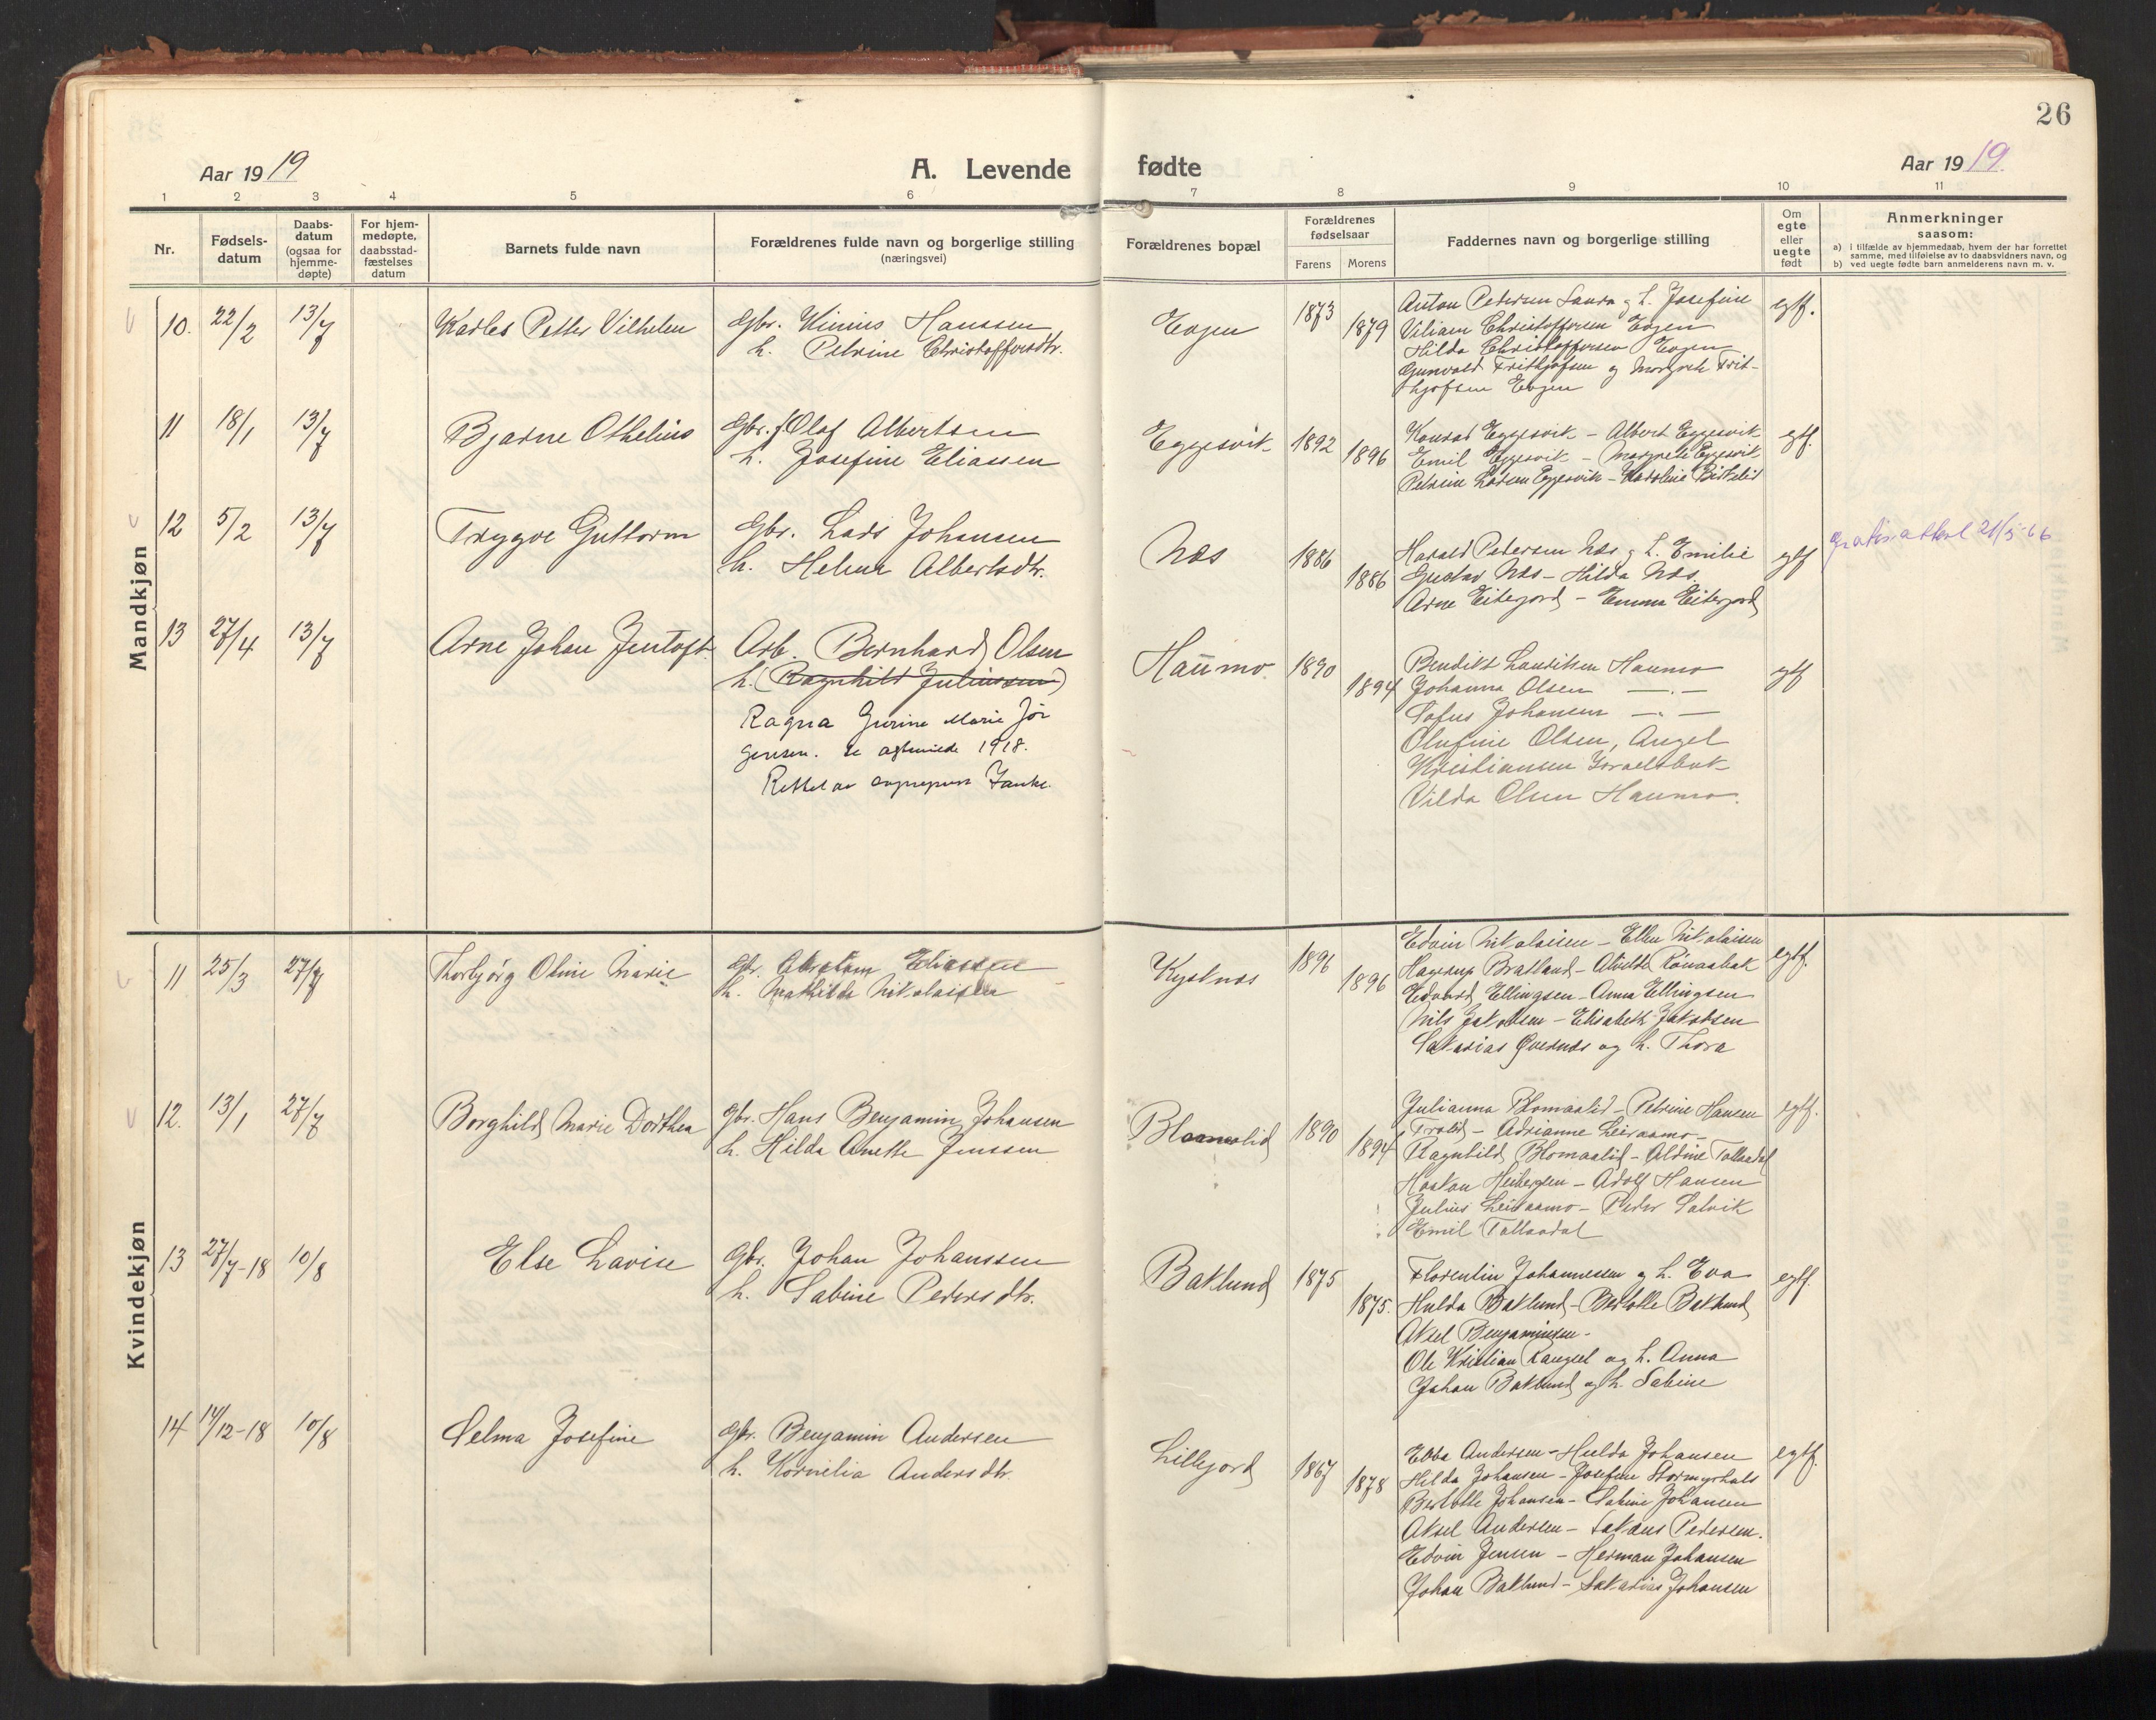 26
Aar 1919
A. Levende fødte
Aar 1919.
1 2 3 4 5 6 7 8 9 10 11
Nr.
Fødsels-
datum
Daabs-
datum
(ogsaa for
hjemme-
døpte)
For hjem-
medøpte,
daabsstad-
fæstelses
datum
Barnets fulde navn
Forældrenes fulde navn og borgerlige stilling
(næringsvei)
Forældrenes bopæl
Forældrenes
fødselsaar
Farens Morens
Faddernes navn og borgerlige stilling
Om
egte
eller
uegte
født
Anmerkninger
saasom:
a) i tilfælde av hjemmedaab, hvem der har forrettet
samme, med tilføielse av to daabsvidners navn, og
b) ved uegte fødte barn anmelderens navn m. v.
Mandkjøn
10. 22/2 13/7 Karles Petter Vilhelm
Gbr. Hanssen
h. Petrine Christoffersdtr.
Evjen 1873 1879
Anton Petersen Sandra g h. Josefine
Viliam Christoffersen Evjen
Hilda Christoffersen Evjen
Gunvald Frithjofsen og Margrete Frit-
hjofsen Evjen
egtf.
11 18/1 13/7 Bjarne Othelius
Gbr. f. Olaf Albertsen
h. Josefine Eliassen
Eggesvik 1892 1896
Konrad Eggesvik - Albert Eggesvik
Emil Eggesvik - Margrete Eggesvik
Petrine Larsen Eggesvik - Karoline Birkelid
egtf.
12 5/2 13/7 Trygve Guttorm
Gbr. Lars Johansen
h. Helene Albertsdtr.
Næs 1886 1886
Harald Petersen Næs g h. Emilie
Gustav Næs - Hilda Næs.
Arne Eiterjord - Emma Eiterjord
egtf
gratisattest 21/5-66
13 27/4 13/7 Arne Johan Jentoft
Arb. Bernhard Olsen
h. (Ragnhild Juliussen)
Ragna Jurine Marie Jør
gensen. Se egteviede 1918.
Rettet av sogneprest
Haumo. 1890 1894
Bendikt Lauritsen Haumo
Johanna Olsen —.—
Sofus Johansen —.—
Olufine Olsen, Angel
Kristiansen Israelsbak
Vilda Olsen Haumo.
egtf
Kvindekjøn
11 25/3 27/7 Thorbjørg Oline Marie
Gbr. Abraham Eliassen
h. Mathilde Nikolaisen
Kystnæs 1896 1896
Edvin Nikolaisen - Ellen Nikolaisen
Hagerup Bratland - Alvilde
Edvard Ellingsen - Anna Ellingsen
Nils Jakobsen - Elisabeth Jakobsen
Sakarias Øvernæs og h. Thora
egtf.
12. 13/1 27/7 Borghild Marie Dorthea
Gbr. Hans Benjamin Johansen
h. Hilda Anette Jenssen
1890 1894
Julianna Blomaalid - Petrine Hansen
- Adrianne Leiraamo -
Ragnhild Blomaalid - Aldine Tollaadal
Haakon Heibergsen - Adolf Hansen
Julius Leiraamo - Peder Salvik
Emil Tollaadal
egtf.
13 27/7-18 10/8 Else Lovise
Gbr. Johan Johanssen
h. Sabine Pedersdtr.
Baklund 1875 1875.
Florentin Johannessen g h. Eva
Hulda Baklund - Bertolle Baklund
Aksel Benjaminsen -
Ole Kristian og h. Anna
Johan Baklund og h. Sabine
egtf.
14 14/12-18 10/8 Selma Josefine
Gbr. Benjamin Andersen
h. Kornelia Andersdtr.
Lillejord 1867 1878
Ebba Andersen - Hulda Johansen
Hilda Johansen - Josefine Stormyrhals
Bertolle Johansen - Sabine Johansen
Aksel Andersen - Petersen.
Edvin Jensen - Herman Johansen
Johan Baklund - Sakarias Johansen
egtf.